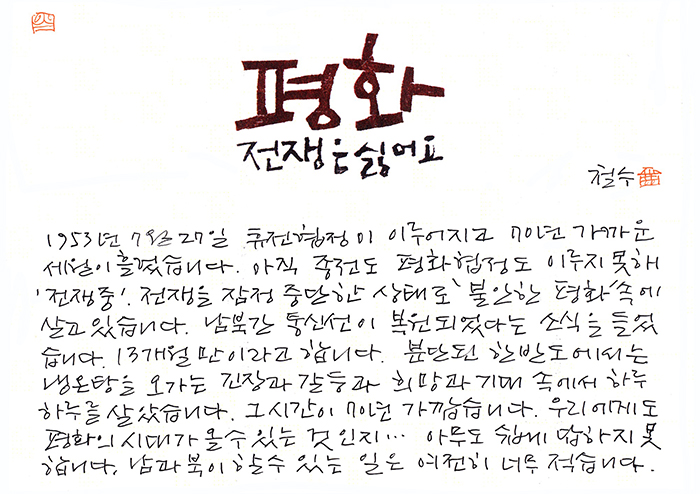 평화
전쟁은 싫어요
철수
1953년 7월 27일 휴전협정이 이루어지고 70년 가까운
세월이 흘렀습니다. 아직 종전도 평화협정도 이루지 못해
'전쟁중'. 전쟁을 잠정 중단한 상태로 '불안한 평화'속에
살고 있습니다. 남북간 통신선이 복원되었다는 소식을 들었
습니다. 13개월 만이라고 합니다. 분단된 한반도에서는
냉온탕을 오가는 긴장과 갈등과 희망과 기대 속에서 하루
하루를 살았습니다. 그 시간이 70년 가깝습니다. 우리에게도
평화의 시대가 올 수 있는 것인지… 아무도 쉽게 답하지 못
합니다. 남과 북이 할 수 있는 일은 여전히 너무 적습니다.